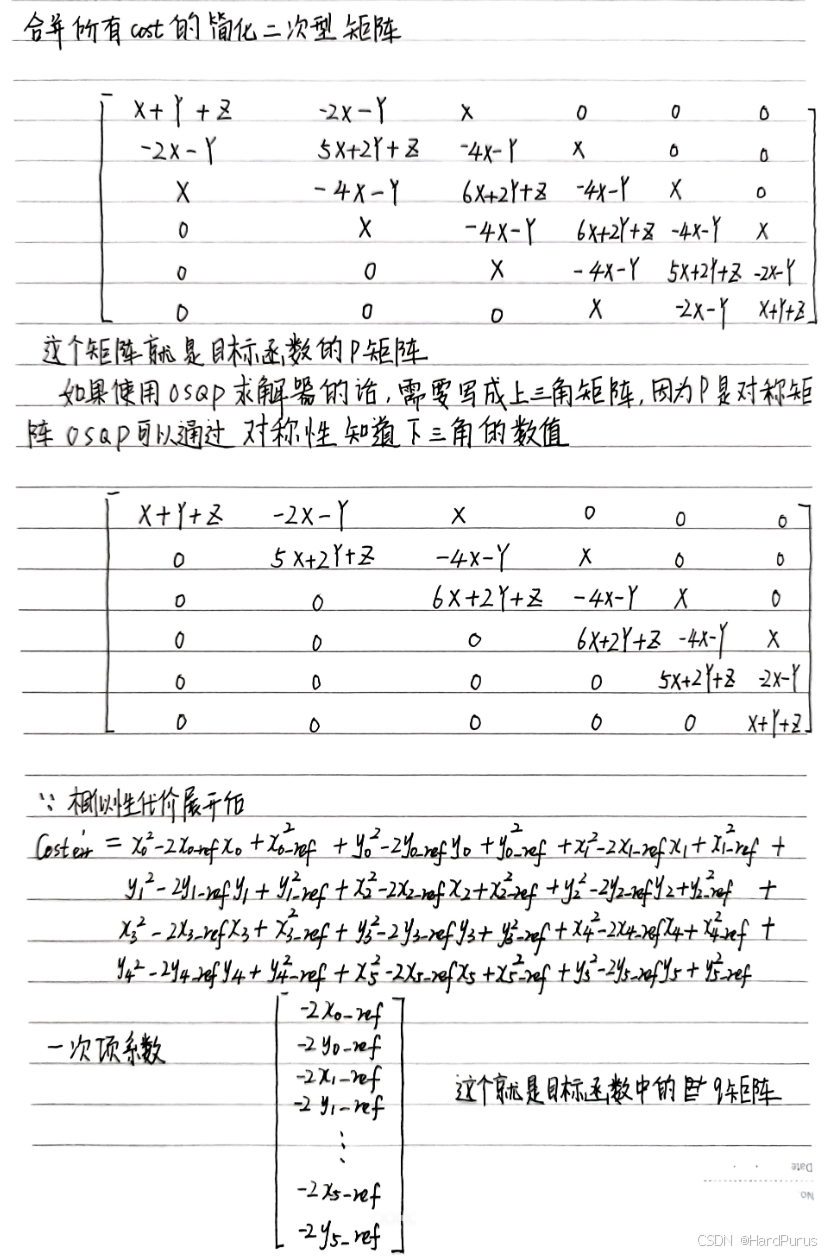 合并所有cost的简化二次型矩阵
X+Y+Z -2X-Y X 0 0 0
-2X-Y 5X+2Y+Z -4X-Y X 0 0
X -4X-Y 6X+2Y+Z -4X-Y X 0
0 X -4X-Y 6X+2Y+Z -4X-Y X
0 0 X -4X-Y 5X+2Y+Z -2X-Y
0 0 0 X -2X-Y X+Y+Z
这个矩阵就是目标函数的P矩阵
如果使用OSQP求解器的话,需要写成上三角矩阵,因为P是对称矩
阵OSQP可以通过对称性知道下三角的数值
X+Y+Z -2X-Y X 0 0 0
0 5X+2Y+Z -4X-Y X 0 0
0 0 6X+2Y+Z -4X-Y X 0
0 0 0 6X+2Y+Z -4X-Y X
0 0 0 0 5X+2Y+Z -2X-Y
0 0 0 0 0 X+Y+Z
∵ 相似性代价展开后
= x₀²-2x₀_ref x₀+x₀_ref² + y₀²-2y₀_ref y₀+y₀_ref² + x₁²-2x₁_ref x₁+x₁_ref² +
y₁²-2y₁_ref y₁+y₁_ref² + x₂²-2x₂_ref x₂+x₂_ref² + y₂²-2y₂_ref y₂+y₂_ref² +
x₃²-2x₃_ref x₃+x₃_ref² + y₃²-2y₃_ref y₃+y₃_ref² + x₄²-2x₄_ref x₄+x₄_ref² +
y₄²-2y₄_ref y₄+y₄_ref² + x₅²-2x₅_ref x₅+x₅_ref² + y₅²-2y₅_ref y₅+y₅_ref²
一次项系数
-2x₀_ref
-2y₀_ref
-2x₁_ref
-2y₁_ref
⋮
-2x₅_ref
-2y₅_ref
这个就是目标函数中的 q矩阵
Date
No
CSDN @HardPurus